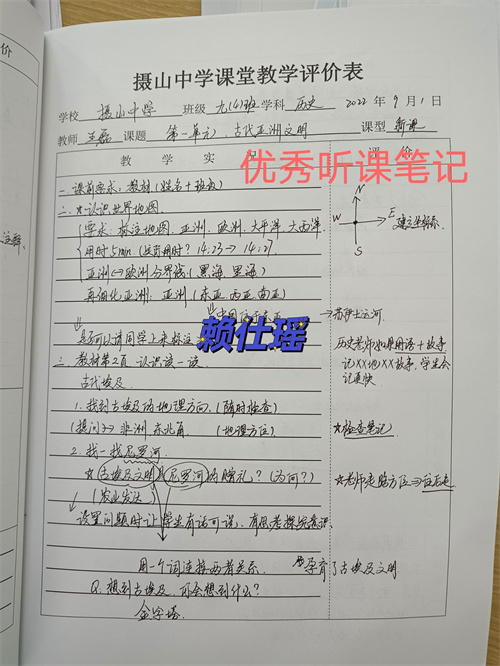 摄山中学课堂教学评价表
学校 摄山中学 班级 九(4)班 学科 历史 2022年9月1日
教师 课题 第一单元 古代亚洲文明 课型 新课
教学实 评价
优秀听课笔记
一、课前要求:教材(姓名+班级)
二、☆认识世界地图
要求:标注地图 亚洲、欧洲、大平洋、大西洋
用时5min 14:23→14:27
亚洲↔欧洲分界线(黑海、里海)
再细化亚洲:亚洲(东亚、西亚、南亚)
是否可以请同学上来标注
赖仕瑶
三、教材第2页 认识读一读
古代埃及
1. 找到古埃及的地理方向(随时检查)
(提问)→非洲东北角 (地理方位)
2. 找一找尼罗河
☆古埃及文明是尼罗河的赠礼?(为何?)
(农业发达)
设置问题时让学生有话可说,有思考探究意识
用一个词连接两者关系 孕育了古埃及文明
Q:想到古埃及,还会想到什么?
金字塔
N
W E 建立坐标系
S
→苏伊士运河
历史老师 用语+故事
记XX地XX故事,学生会
记更快
☆检查笔记